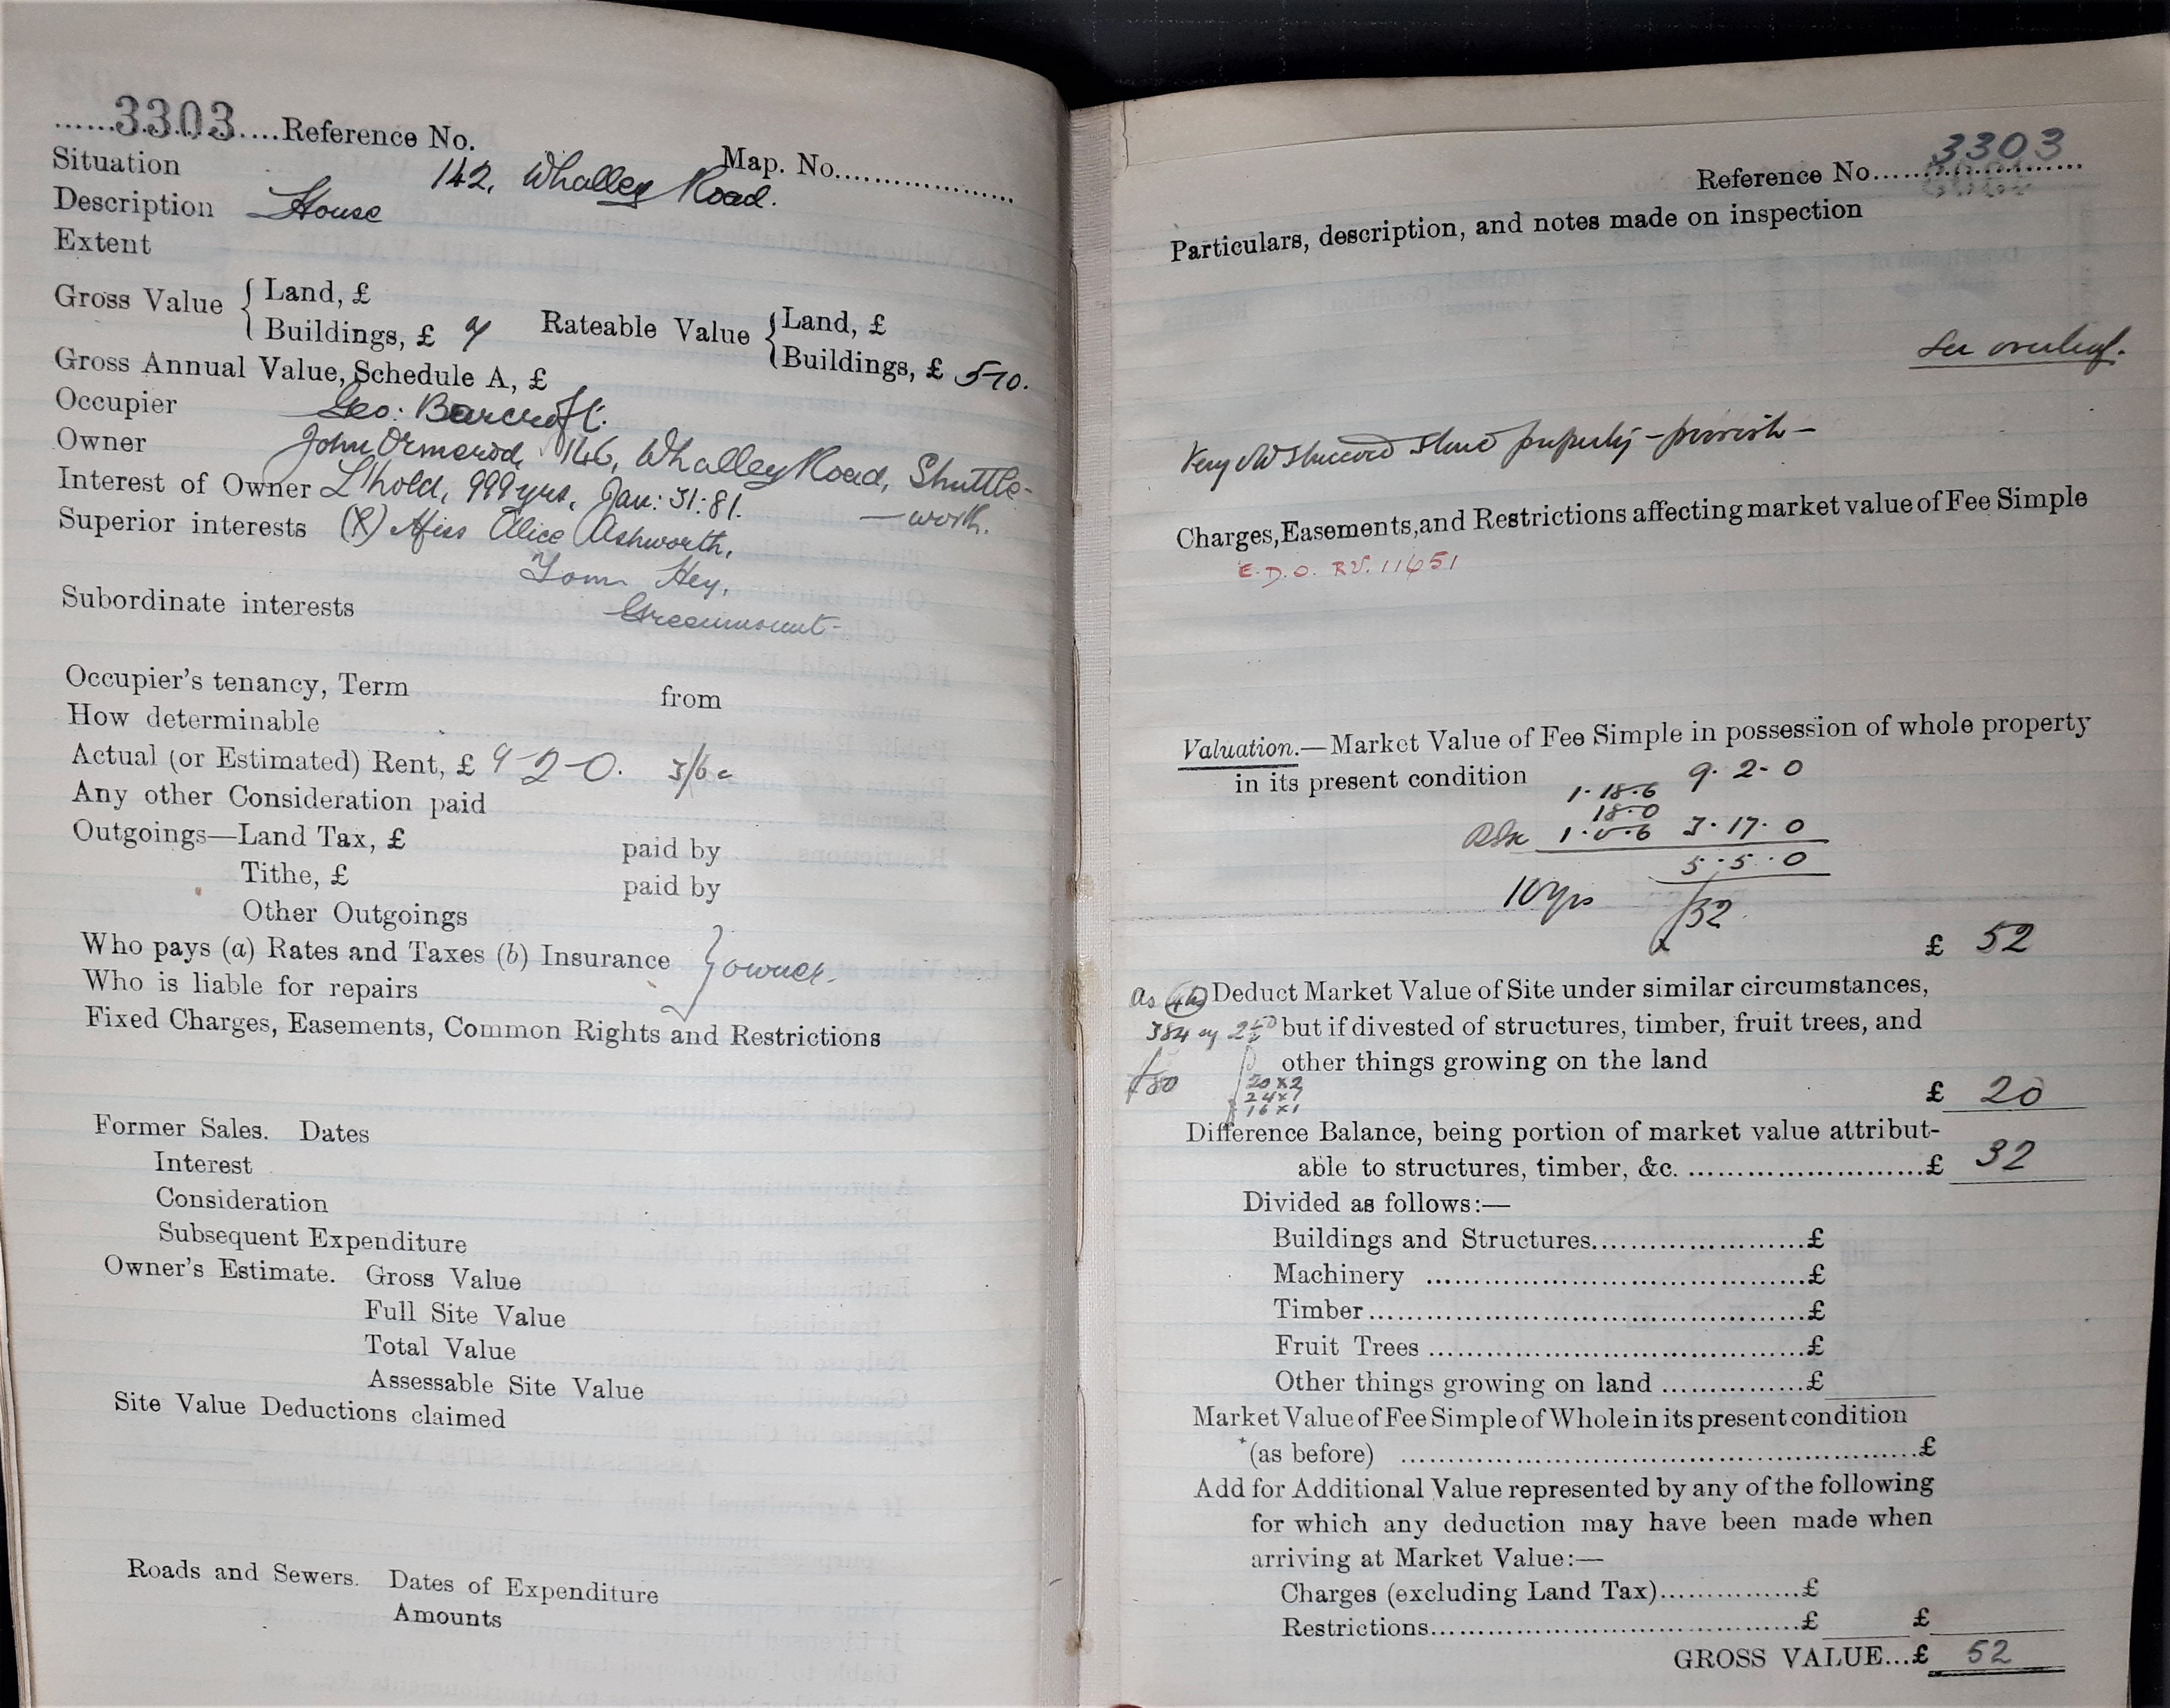 ......3303....Reference No.
Map. No....................
Situation 142, Whalley Road.
Description House
Extent
Gross Value { Land, £
Buildings, £ Rateable Value { Land, £
Buildings, £ 5-10.
Gross Annual Value, Schedule A, £
Occupier Geo: Barcroft.
Owner John Ormerod, 146, Whalley Road, Shuttle-
—worth.
Interest of Owner L'hold, 999 yrs, Jan: 31: 81.
Superior interests (R) Miss Alice Ashworth,
Tom Hey,
Subordinate interests Greenmount-
Occupier's tenancy, Term from
How determinable
Actual (or Estimated) Rent, £ 9-2-0. 3/6
Any other Consideration paid
Outgoings—Land Tax, £ paid by
Tithe, £ paid by
Other Outgoings
Who pays (a) Rates and Taxes (b) Insurance } owner.
Who is liable for repairs
Fixed Charges, Easements, Common Rights and Restrictions
Former Sales. Dates
Interest
Consideration
Subsequent Expenditure
Owner's Estimate. Gross Value
Full Site Value
Total Value
Assessable Site Value
Site Value Deductions claimed
Roads and Sewers. Dates of Expenditure
Amounts
Reference No.....3303......
Particulars, description, and notes made on inspection
See overleaf.
Very old stuccoed stone property -
Charges, Easements, and Restrictions affecting market value of Fee Simple
E.D.O. RV. 11651
Valuation.—Market Value of Fee Simple in possession of whole property
in its present condition 9. 2- 0
1. 18.6
18.0
1.0.6 3. 17. 0
5. 5. 0
10 yrs /52
£ 52
as Deduct Market Value of Site under similar circumstances,
384 but if divested of structures, timber, fruit trees, and
£80 other things growing on the land
20 x 2
24 x 7
16 x 1
£ 20
Difference Balance, being portion of market value attribut-
able to structures, timber, &c. ........................£ 32
Divided as follows:—
Buildings and Structures......................£
Machinery .......................................£
Timber............................................£
Fruit Trees ......................................£
Other things growing on land ...............£
Market Value of Fee Simple of Whole in its present condition
(as before) .....................................................£
Add for Additional Value represented by any of the following
for which any deduction may have been made when
arriving at Market Value:—
Charges (excluding Land Tax)...............£
Restrictions.......................................£ £
GROSS VALUE...£ 52